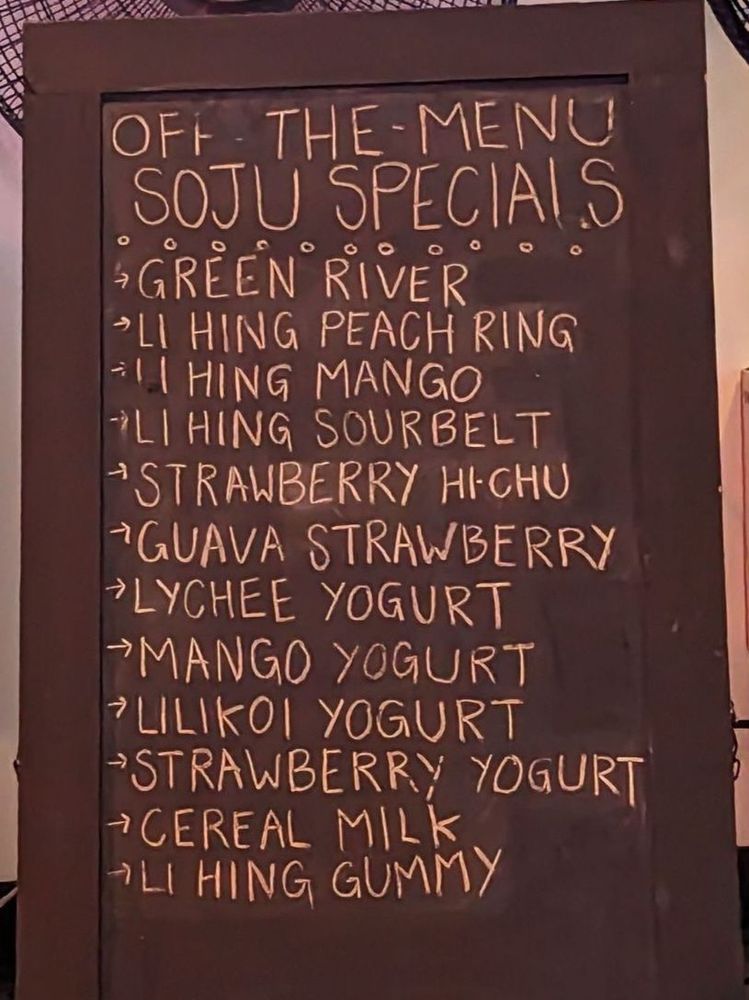 OFF-THE-MENU
SOJU SPECIALS
→GREEN RIVER
→LI HING PEACH RING
→LI HING MANGO
→LI HING SOURBELT
→STRAWBERRY HI-CHU
→GUAVA STRAWBERRY
→LYCHEE YOGURT
→MANGO YOGURT
→LILIKOI YOGURT
→STRAWBERRY YOGURT
→CEREAL MILK
→LI HING GUMMY